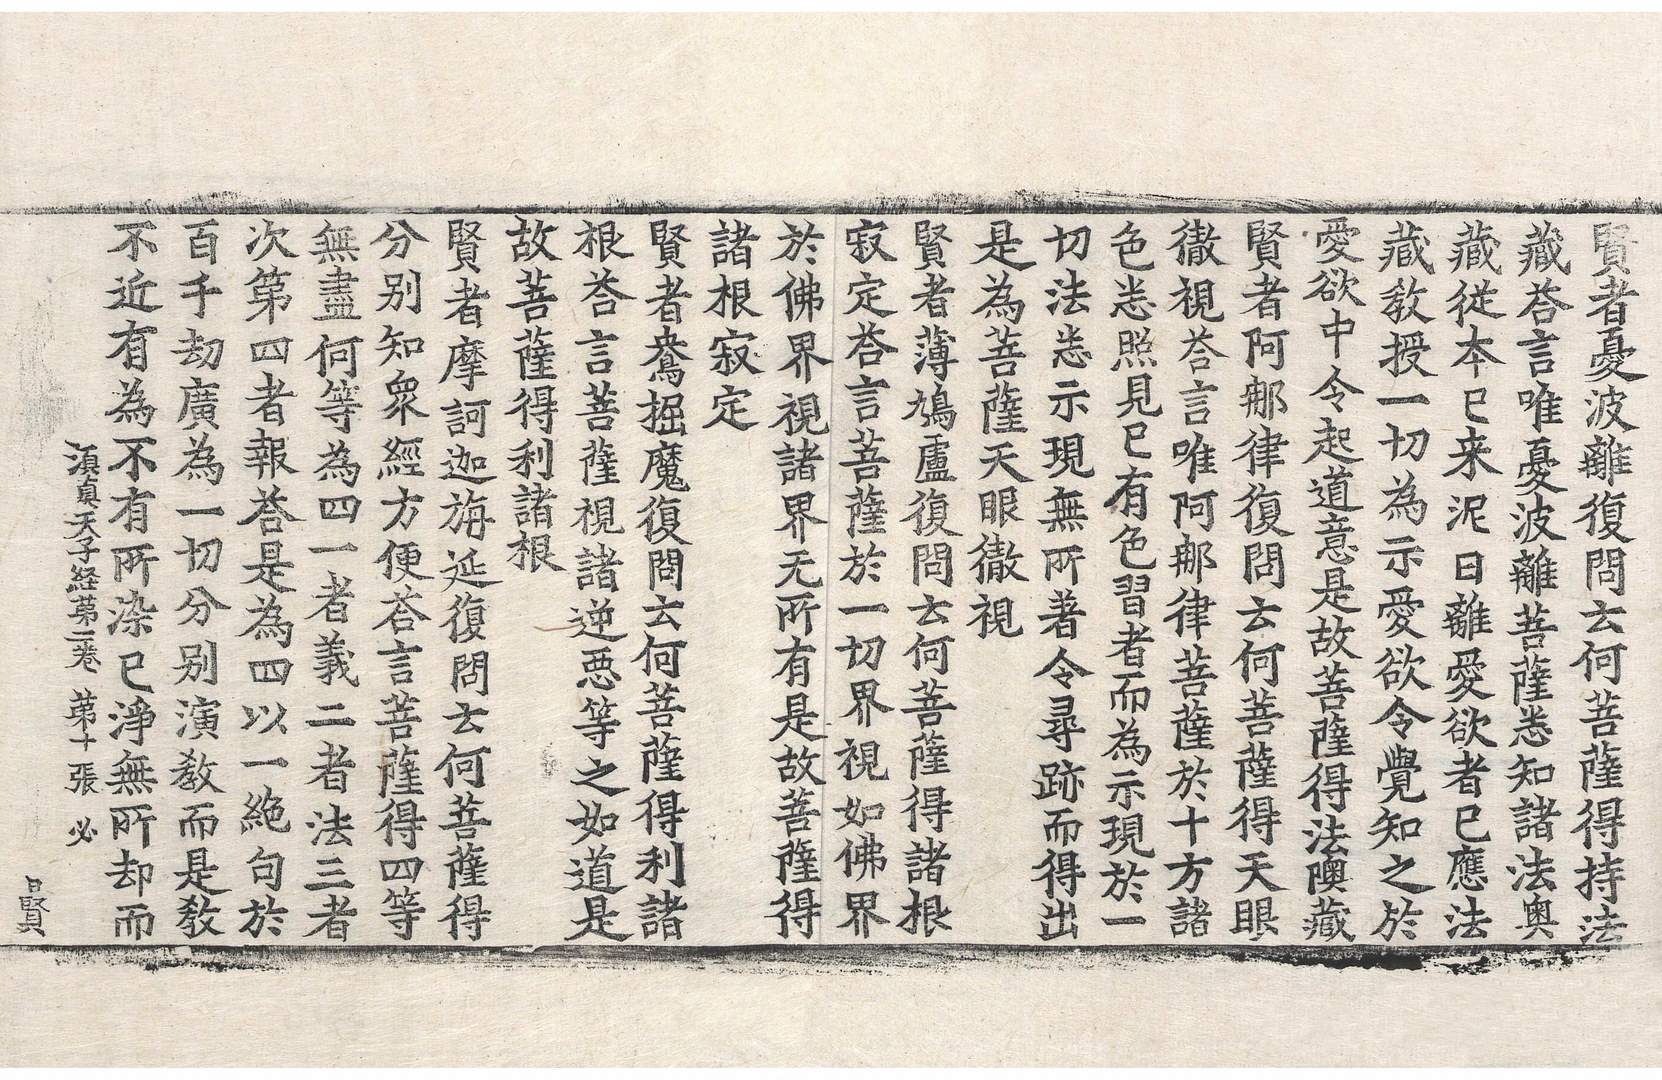 賢者憂波離復問云何菩薩得持法
藏荅言唯憂波離菩薩悉知諸法奧
藏從本已来泥曰離愛欲者已應法
藏教授一切為示愛欲令覺知之於
愛欲中令起道意是故菩薩得法隩藏
賢者阿那律復問云何菩薩得天眼
徹視荅言唯阿那律菩薩於十方諸
色悉照見已有色習者而為示現於一
切法悉示現無所著令尋跡而得出
是為菩薩天眼徹視
賢者薄鳩盧復問云何菩薩得諸根
寂定荅言菩薩於一切界視如佛界
於佛界視諸界无所有是故菩薩得
諸根寂定
賢者鴦掘魔復問云何菩薩得利諸
根荅言菩薩視諸逆惡等之如道是
故菩薩得利諸根
賢者摩訶迦旃延復問云何菩薩得
分别知衆經方便荅言菩薩得四等
無盡何等為四一者義二者法三者
次第四者報荅是為四以一絶句於
百千劫廣為一切分别演教而是教
不近有為不有所染已淨無所却而
湏真天子経第二卷 第十張 必
賢